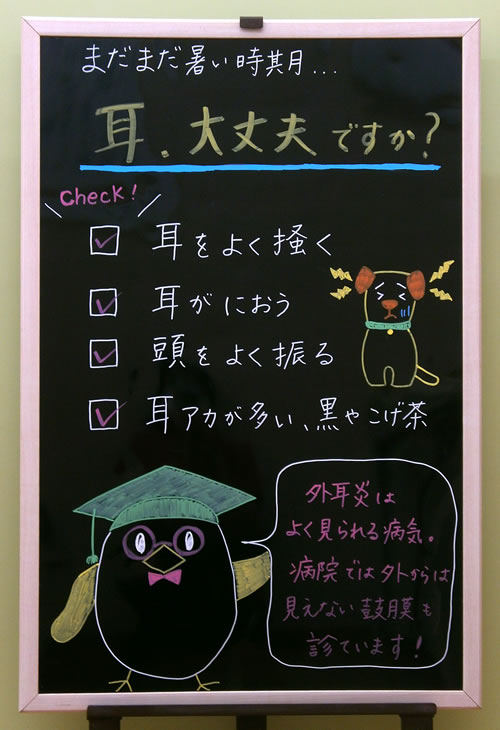 まだまだ暑い時期月...
耳、大丈夫ですか?
Check!
耳をよく掻く
耳がにおう
頭をよく振る
耳アカが多い、黒やこげ茶
外耳炎は
よく見られる病気。
病院では外からは
見えない鼓膜も
診ています!